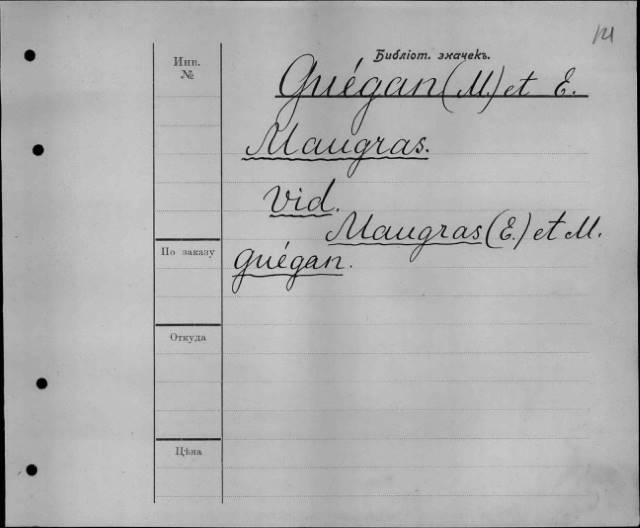 Библіот. значекъ.
Инв.
№
Guégan (M.) et E.
Maugras.
Vid.
Maugras (E.) et M.
Guégan.
По заказу
Откуда
Цѣна